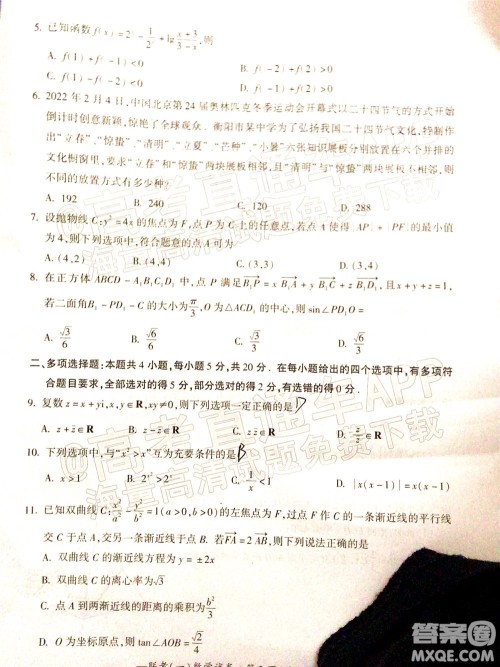 5. 已知函数f(x)=2ˣ-1/2ˣ+lg (3+x)/(3-x),则
A. f(1)+f(-1)<0 B. f(-2)+f(1)>0
C. f(1)+f(-2)<0 D. f(-1)+f(2)>0
6. 2022年2月4日,中国北京第24届奥林匹克冬季运动会开幕式以二十四节气的方式开始
倒计时创意新颖,惊艳了全球观众.衡阳市某中学为了弘扬我国二十四节气文化,特制作
出“立春”、“惊蛰”、“清明”、“立夏”、“芒种”、“小暑”六张知识展板分别放置在六个并排的
文化橱窗里,要求“立春”和“惊蛰”两块展板相邻,且“清明”与“惊蛰”两块展板不相邻,则
不同的放置方式有多少种?
A. 192 B. 240 C. 120 D. 288
7. 设抛物线C:y²=4x的焦点为F,点P为C上的任意点,若点A使得|AP|+|PF|的最小值
为4,则下列选项中,符合题意的点A可为
A. (4,2) B. (4,4) C. (3,3) D. (3,4)
8. 在正方体ABCD-A₁B₁C₁D₁中,点P满足B₁P=xB₁A₁+yB₁C₁+zB₁D₁,且x+y+z=1,
若二面角B₁-PD₁-C的大小为π/3,O为△ACD₁的中心,则sin∠PD₁O=
A. √3/3 B. √6/6 C. √6/3 D. √3/6
二、多项选择题:本题共4小题,每小题5分,共20分.在每小题给出的四个选项中,有多项符
合题目要求,全部选对的得5分,部分选对的得2分,有选错的得0分.
9. 复数z=x+yi,x,y∈R,xy≠0,则下列选项一定正确的是 D
10. 下列选项中,与“x²>x”互为充要条件的是 B
A. x>1 C. 1/x<1 D. |x(x-1)|=x(x-1)
11. 已知双曲线C:x²/a²-y²/b²=1(a>0,b>0)的左焦点为F,过F作C的一条渐近线的平行线
交C于点A,交另一条渐近线于点B.若FA=2AB,则下列说法正确的是
A. 双曲线C的渐近线方程为y=±2x
B. 双曲线C的离心率为√3
C. 点A到两渐近线的距离的乘积为b²/3
D. O为坐标原点,则tan∠AOB=√2/4
高考直通车APP
海量高清试题免费下载
高考直通车APP
海量高清试题免费下载
答案圈
MXQE.COM